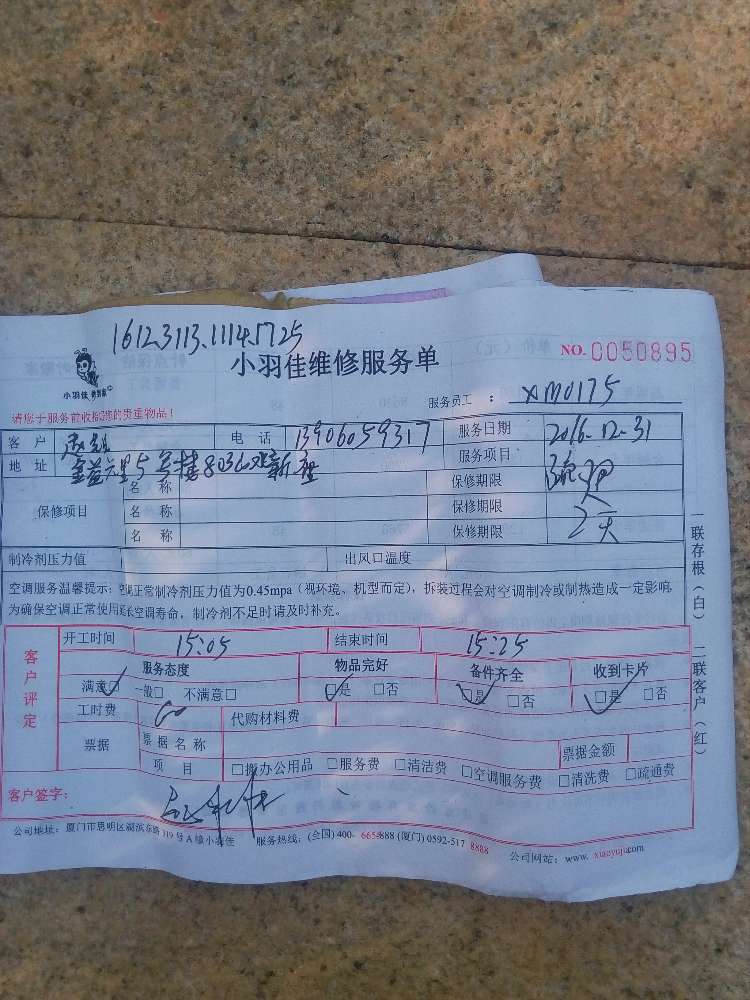 1612.3113.1114.1725
小羽佳维修服务单
NO. 0050895
小羽佳
服务员工 : XM0175
请您于服务前收捡您的贵重物品!
客 户 电 话 13906059317 服务日期 2016-12-31
地 址 5号楼803 服务项目
保修项目 名 称 保修期限
名 称 保修期限
名 称 保修期限 2天
制冷剂压力值 出风口温度
空调服务温馨提示: 空调正常制冷剂压力值为0.45mpa(视环境、机型而定),拆装过程会对空调制冷或制热造成一定影响,
为确保空调正常使用延长空调寿命,制冷剂不足时请及时补充。
一联存根(白) 二联客户(红)
客户评定
开工时间 15:05 结束时间 15:25
服务态度 物品完好 备件齐全 收到卡片
满意□ 一般□ 不满意□ □是 □否 □是 □否 □是 □否
工时费 60 代购材料费
票据 票据名称 票据金额
项 目 □搬办公用品 □服务费 □清洁费 □空调服务费 □清洗费 □疏通费
客户签字:
公司地址: 厦门市思明区湖滨东路319号A幢小羽佳 服务热线: (全国) 400-6658888 (厦门) 0592-517 8888 公司网站: www. xiaoyujia.com